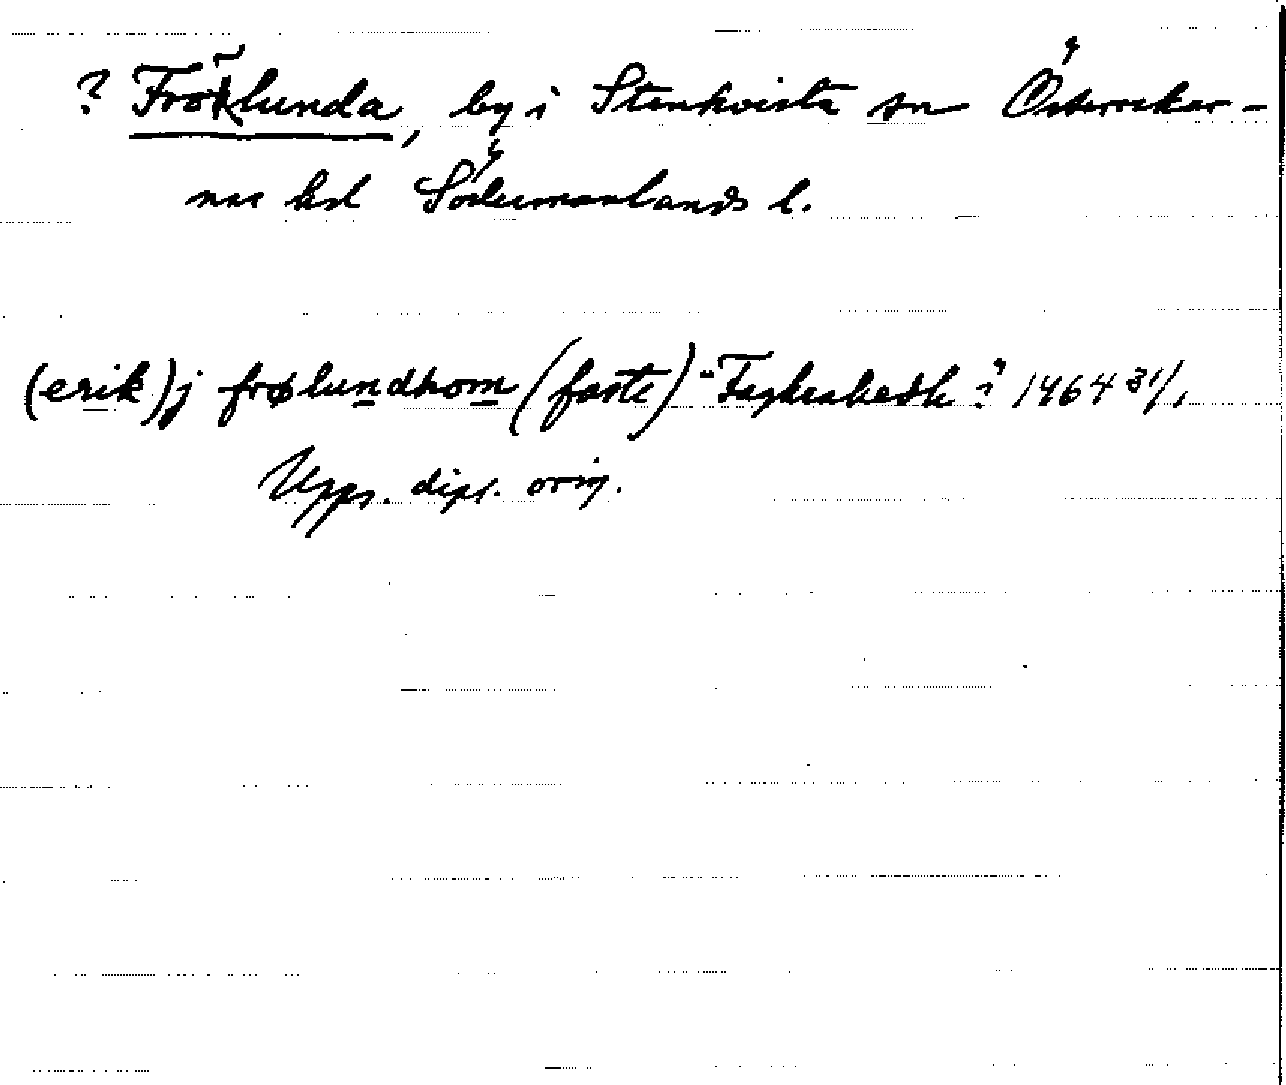 ? Frölunda, by i Stenkvista sn Österrekar-
nes hd Södermanlands l.
(erik) j frølundhom (faste) "Faghrahedh"? 1464 31/1
Upps. dipl. orig.